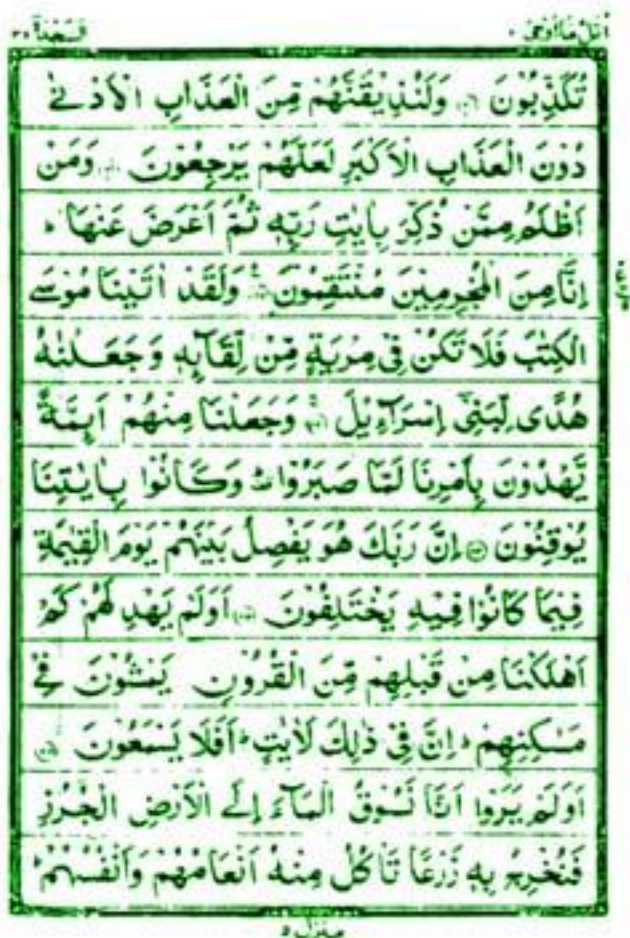 السجدة ٣٢
اتل ما اوحی
تُكَذِّبُوْنَ ۞ وَلَنُذِيْقَنَّهُمْ مِّنَ الْعَذَابِ الْاَدْنٰے
دُوْنَ الْعَذَابِ الْاَكْبَرِ لَعَلَّهُمْ يَرْجِعُوْنَ ۞ وَمَنْ
اَظْلَمُ مِمَّنْ ذُكِّرَ بِاٰيٰتِ رَبِّهٖ ثُمَّ اَعْرَضَ عَنْهَا ؕ
اِنَّا مِنَ الْمُجْرِمِيْنَ مُنْتَقِمُوْنَ ۞ وَلَقَدْ اٰتَيْنَا مُوْسَے
الْكِتٰبَ فَلَا تَكُنْ فِيْ مِرْيَةٍ مِّنْ لِّقَآئِهٖ وَجَعَلْنٰهُ
هُدًى لِّبَنِيْٓ اِسْرَآءِيْلَ ۞ وَجَعَلْنَا مِنْهُمْ اَئِمَّةً
يَّهْدُوْنَ بِاَمْرِنَا لَمَّا صَبَرُوْا ؕ وَكَانُوْا بِاٰيٰتِنَا
يُوْقِنُوْنَ ۞ اِنَّ رَبَّكَ هُوَ يَفْصِلُ بَيْنَهُمْ يَوْمَ الْقِيٰمَةِ
فِيْمَا كَانُوْا فِيْهِ يَخْتَلِفُوْنَ ۞ اَوَلَمْ يَهْدِ لَهُمْ كَمْ
اَهْلَكْنَا مِنْ قَبْلِهِمْ مِّنَ الْقُرُوْنِ يَمْشُوْنَ فِيْ
مَسٰكِنِهِمْ ؕ اِنَّ فِيْ ذٰلِكَ لَاٰيٰتٍ ؕ اَفَلَا يَسْمَعُوْنَ ۞
اَوَلَمْ يَرَوْا اَنَّا نَسُوْقُ الْمَآءَ اِلَے الْاَرْضِ الْجُرُزِ
فَنُخْرِجُ بِهٖ زَرْعًا تَاْكُلُ مِنْهُ اَنْعَامُهُمْ وَاَنْفُسُهُمْ ؕ
منزل ٥